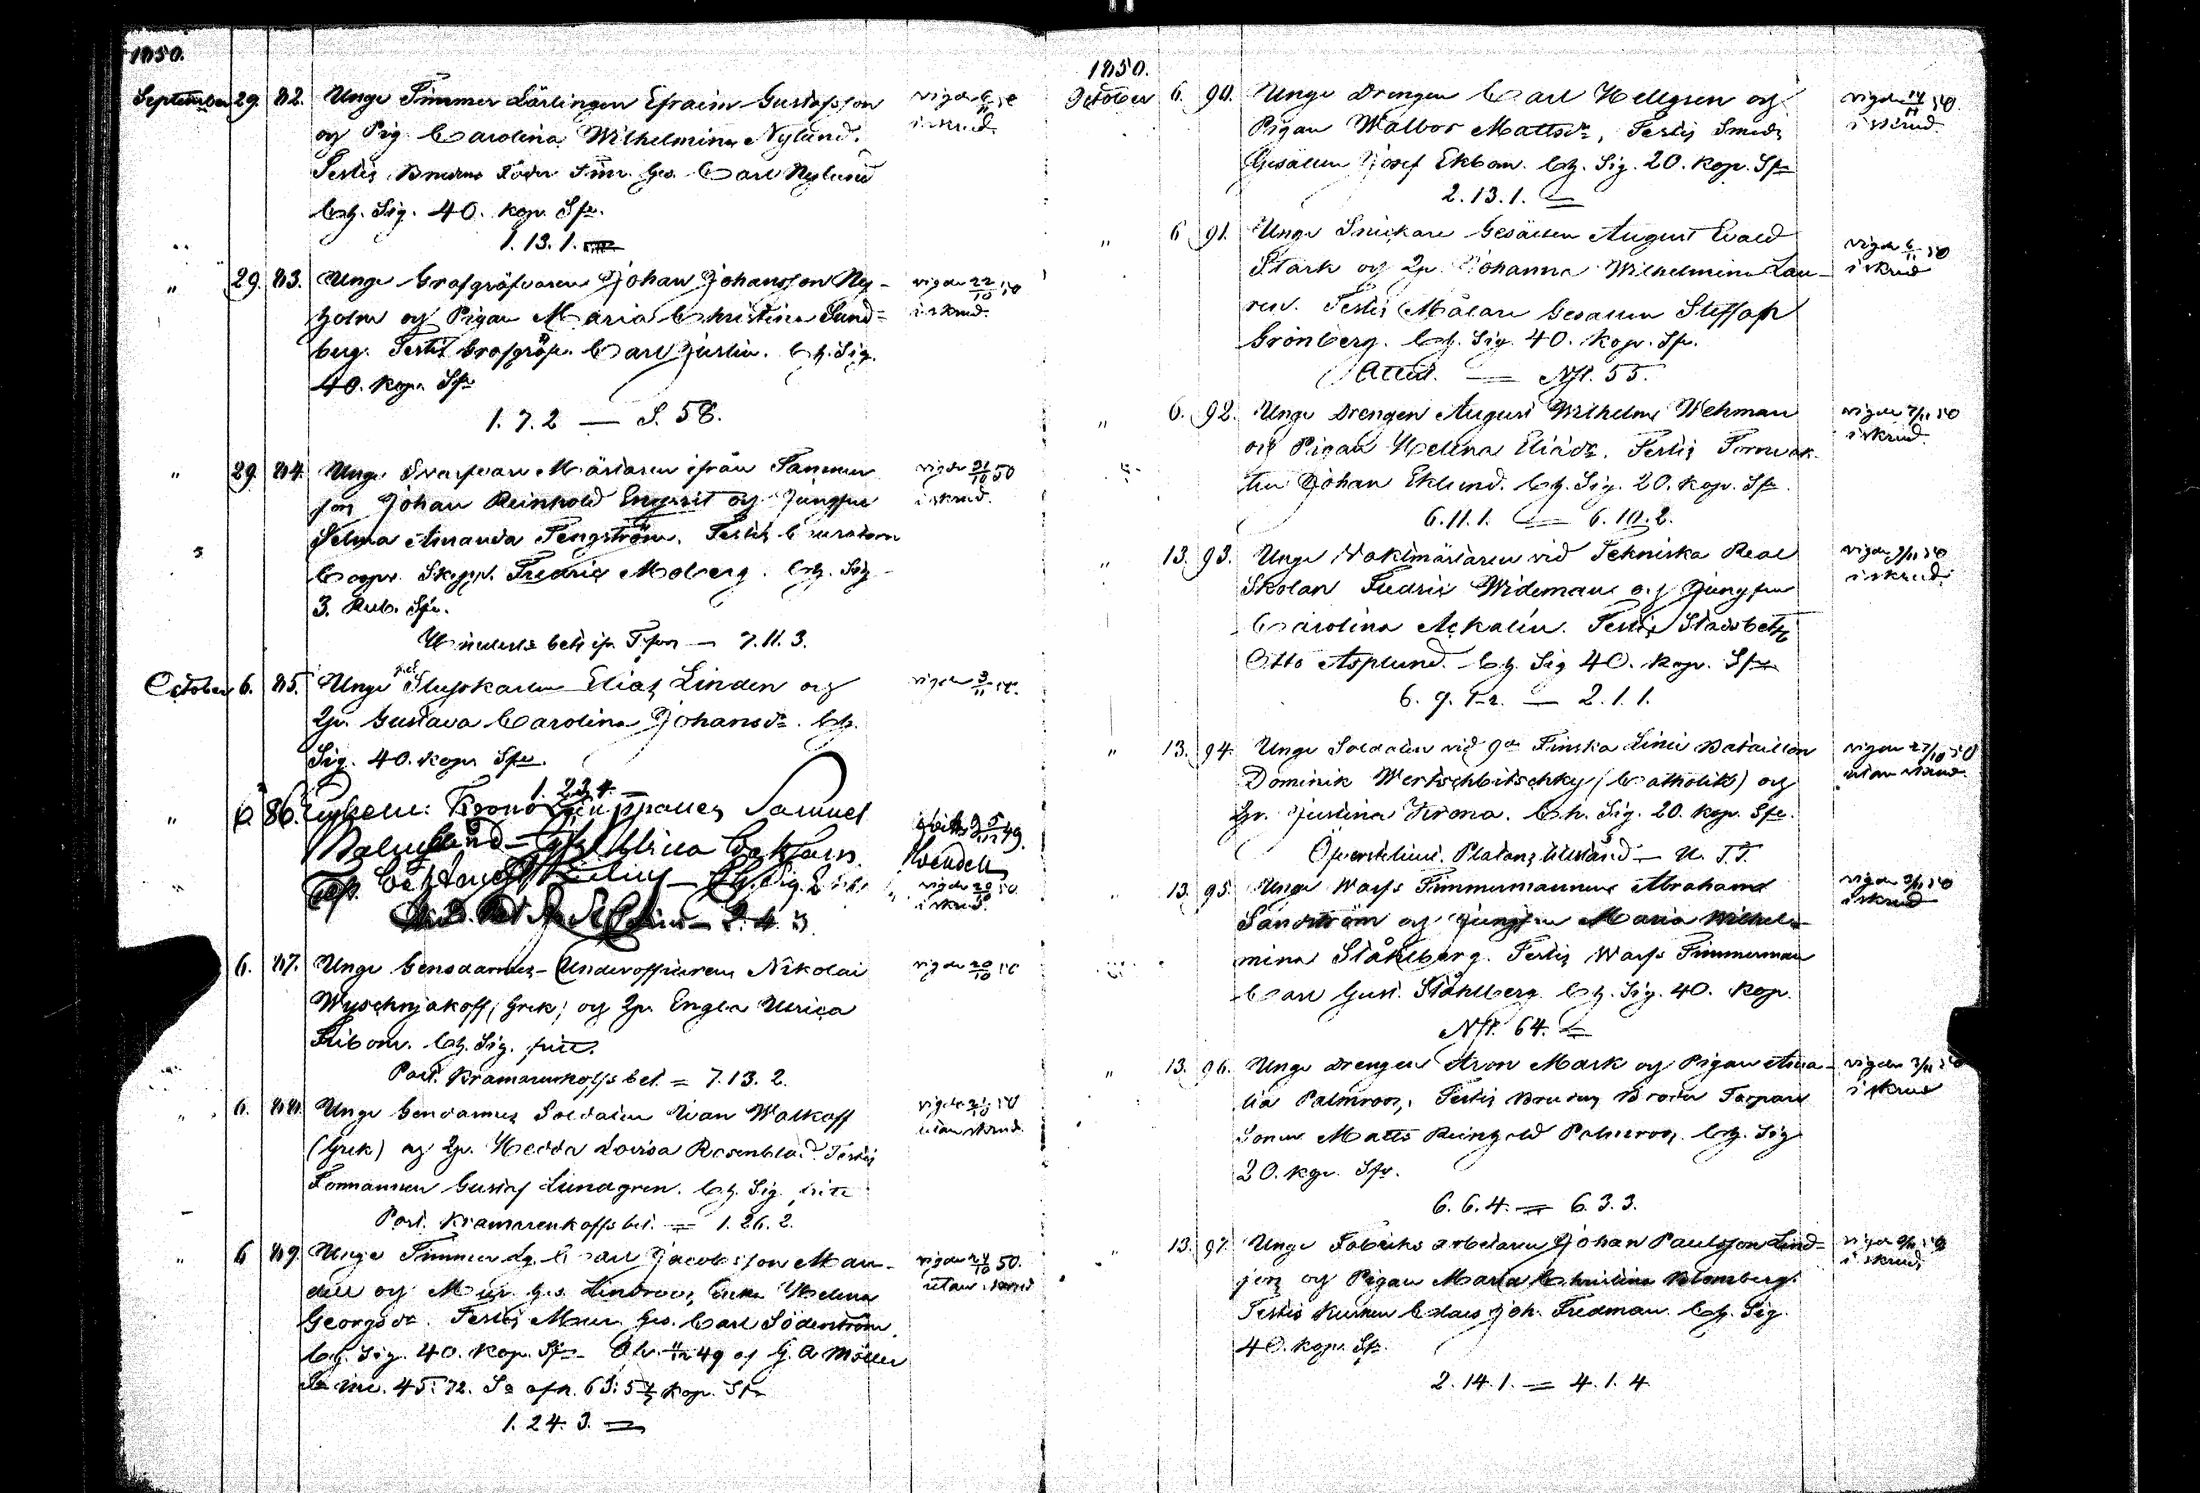 1850.
September 29. 82. Unge Timmer Lärlingen Efraim Gustafsson
og Pig. Carolina Wilhelmina Nylund.
Testis Brudens Fader Tim. Ges. Carl Nylund
Ch. Sig. 40. kop. Sfr.
1. 13. 1.
vigde 50
i skrud.
" 29. 83. Unge Grofgräfvaren Johan Johansson Ny-
holm og Pigan Maria Christina Sund-
berg. Testis Grofgräfv. Carl Justin. Ch. Sig.
40. kop. Sfr
1. 7. 2 — S. 58.
vigde 22/10 50
i skrud.
" 29. 84. Unge Svarfvare Mästaren ifrån Tammer
fors Johan Reinhold Engqvist og Jungfru
Selma Amanda Tengström. Testis Curatorn
Coopv. Skepp. Fredric Moberg. Ch. Sig
3. Rub. Sfr.
bets fr. T.fors — 7. 11. 3.
vigde 31/10 50
i skrud.
October 6. 85. Unge Slupskarlen Elias Linden og
Qp. Gustava Carolina Johansdr. Ch.
Sig. 40. kop. Sfr.
1. 23. 4. —
vigde 3/11 50.
" 6. 86. Samuel
Ulrica
Ch. Sig.
2. 4. 3.
vigde 20/10 50
i skrud.
6. 87. Unge Gensdarmes-Underofficeren Nikolai
Wyschnjakoff, (Grek) og Qp. Engla Ulrica
Fribom. Ch. Sig. fritt.
Port. Kramarenkoffs bet. = 7. 13. 2.
vigde 20/10 50
" 6. 88. Unge Gendarmes Soldaten Ivan Walkoff
(Grek) og Qp. Hedda Lovisa Rosenblad. Testis
Formannen Gustaf Lundgren. Ch. Sig. fritt
Port. Kramarenkoffs bet. = 1. 26. 2.
vigde 50
utan skrud.
" 6 89. Unge Timmer Lg. Carl Jacobsson Man-
dell og Mur. Ges. Lindroos, Enka Helena
Georgsdr. Testis Murr. Ges. Carl Söderström.
Ch. Sig. 40. kop. Sfr. 49 af G. A. Möller
Sa inv. 45: 72. Sa afk. 63: 5 kop. Sfr
1. 24. 3. =
vigde 50.
utan skrud
1850.
October 6. 90. Unge Drengen Carl Hellgren og
Pigan Walbor Mattsdr, Testis Smeds
Gesällen Josef Ekbom. Ch. Sig. 20. kop. Sfr
2. 13. 1. =
vigde 14/11 50.
i skrud.
" 6 91. Unge Snickare Gesällen August Evald
Stark og Qp. Johanna Wilhelmina Lau-
ren. Testis Målare Gesällen Steffan
Grönberg. Ch. Sig. 40. kop. Sfr.
Attest. — Nfl. 55.
vigde 6/11 50
i skrud
" 6. 92. Unge Drengen August Wilhelm Wehman
og Pigan Helena Eliædr. Testis Tornvak-
ten Johan Eklund. Ch. Sig. 20. kop. Sfr.
6. 11. 1. — 6. 10. 2.
vigde 7/11 50
i skrud.
" 13. 93. Unge Vaktmästaren vid Tekniska Real
Skolan Fredric Wideman og Jungfru
Carolina Ackalin. Testis Stadsbetj.
Otto Asplund. Ch. Sig 40. kop. Sfr
6. 9. 1-2. — 2. 1. 1.
vigde 50
i skrud.
" 13. 94. Unge Soldaten vid 9de Finska Linie Bataillon
Dominik Wertschbitschky (Catholik) og
Qp. Justina Krona. Ch. Sig. 20. kop. Sfr.
Öfverstelieut. Platans tillstånd — U. T. T.
vigde 27/10 50
utan skrud
13. 95. Unge Warfs Timmermannen Abraham
Sandström og Jungfru Maria Wilhel-
mina Ståhlberg. Testis Warfs Timmerman
Carl Gust. Ståhlberg. Ch. Sig. 40. kop.
Nfl. 64. =
vigde 3/11 50
i skrud
" 13. 96. Unge Drengen Aron Mark og Pigan Ama-
lia Palmroos, Testis Brudens Broder Torpare
Sonen Matts Reinhold Palmroos. Ch. Sig
20. kop. Sfr.
6. 6. 4. = 6. 3. 3.
vigde 3/11 50
i skrud
" 13. 97. Unge Fabriks arbetaren Johan Paulsson Lind-
fors og Pigan Maria Christina Blomberg.
Testis Kusken Claes Joh. Fredman. Ch. Sig.
40. kop. Sfr.
2. 14. 1. = 4. 1. 4.
vigde 50
i skrud